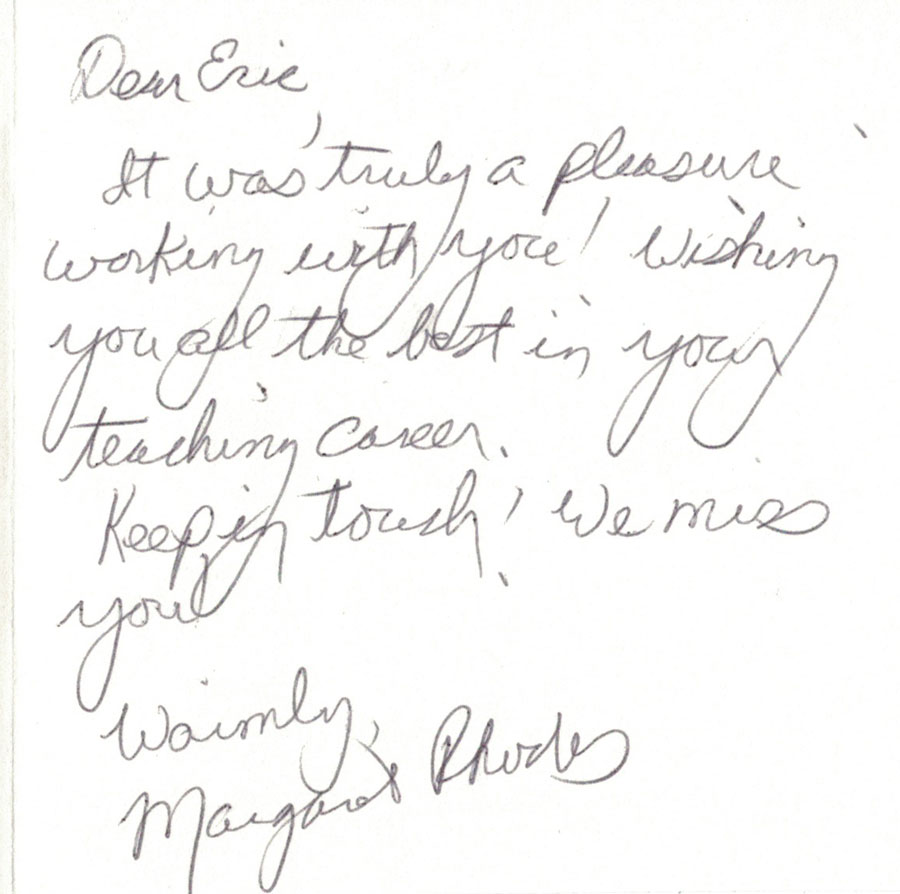 Dear Eric,
It was truly a pleasure
working with you! Wishing
you all the best in your
teaching career.
Keep in touch! We miss
you
Warmly,
Margaret Rhodes